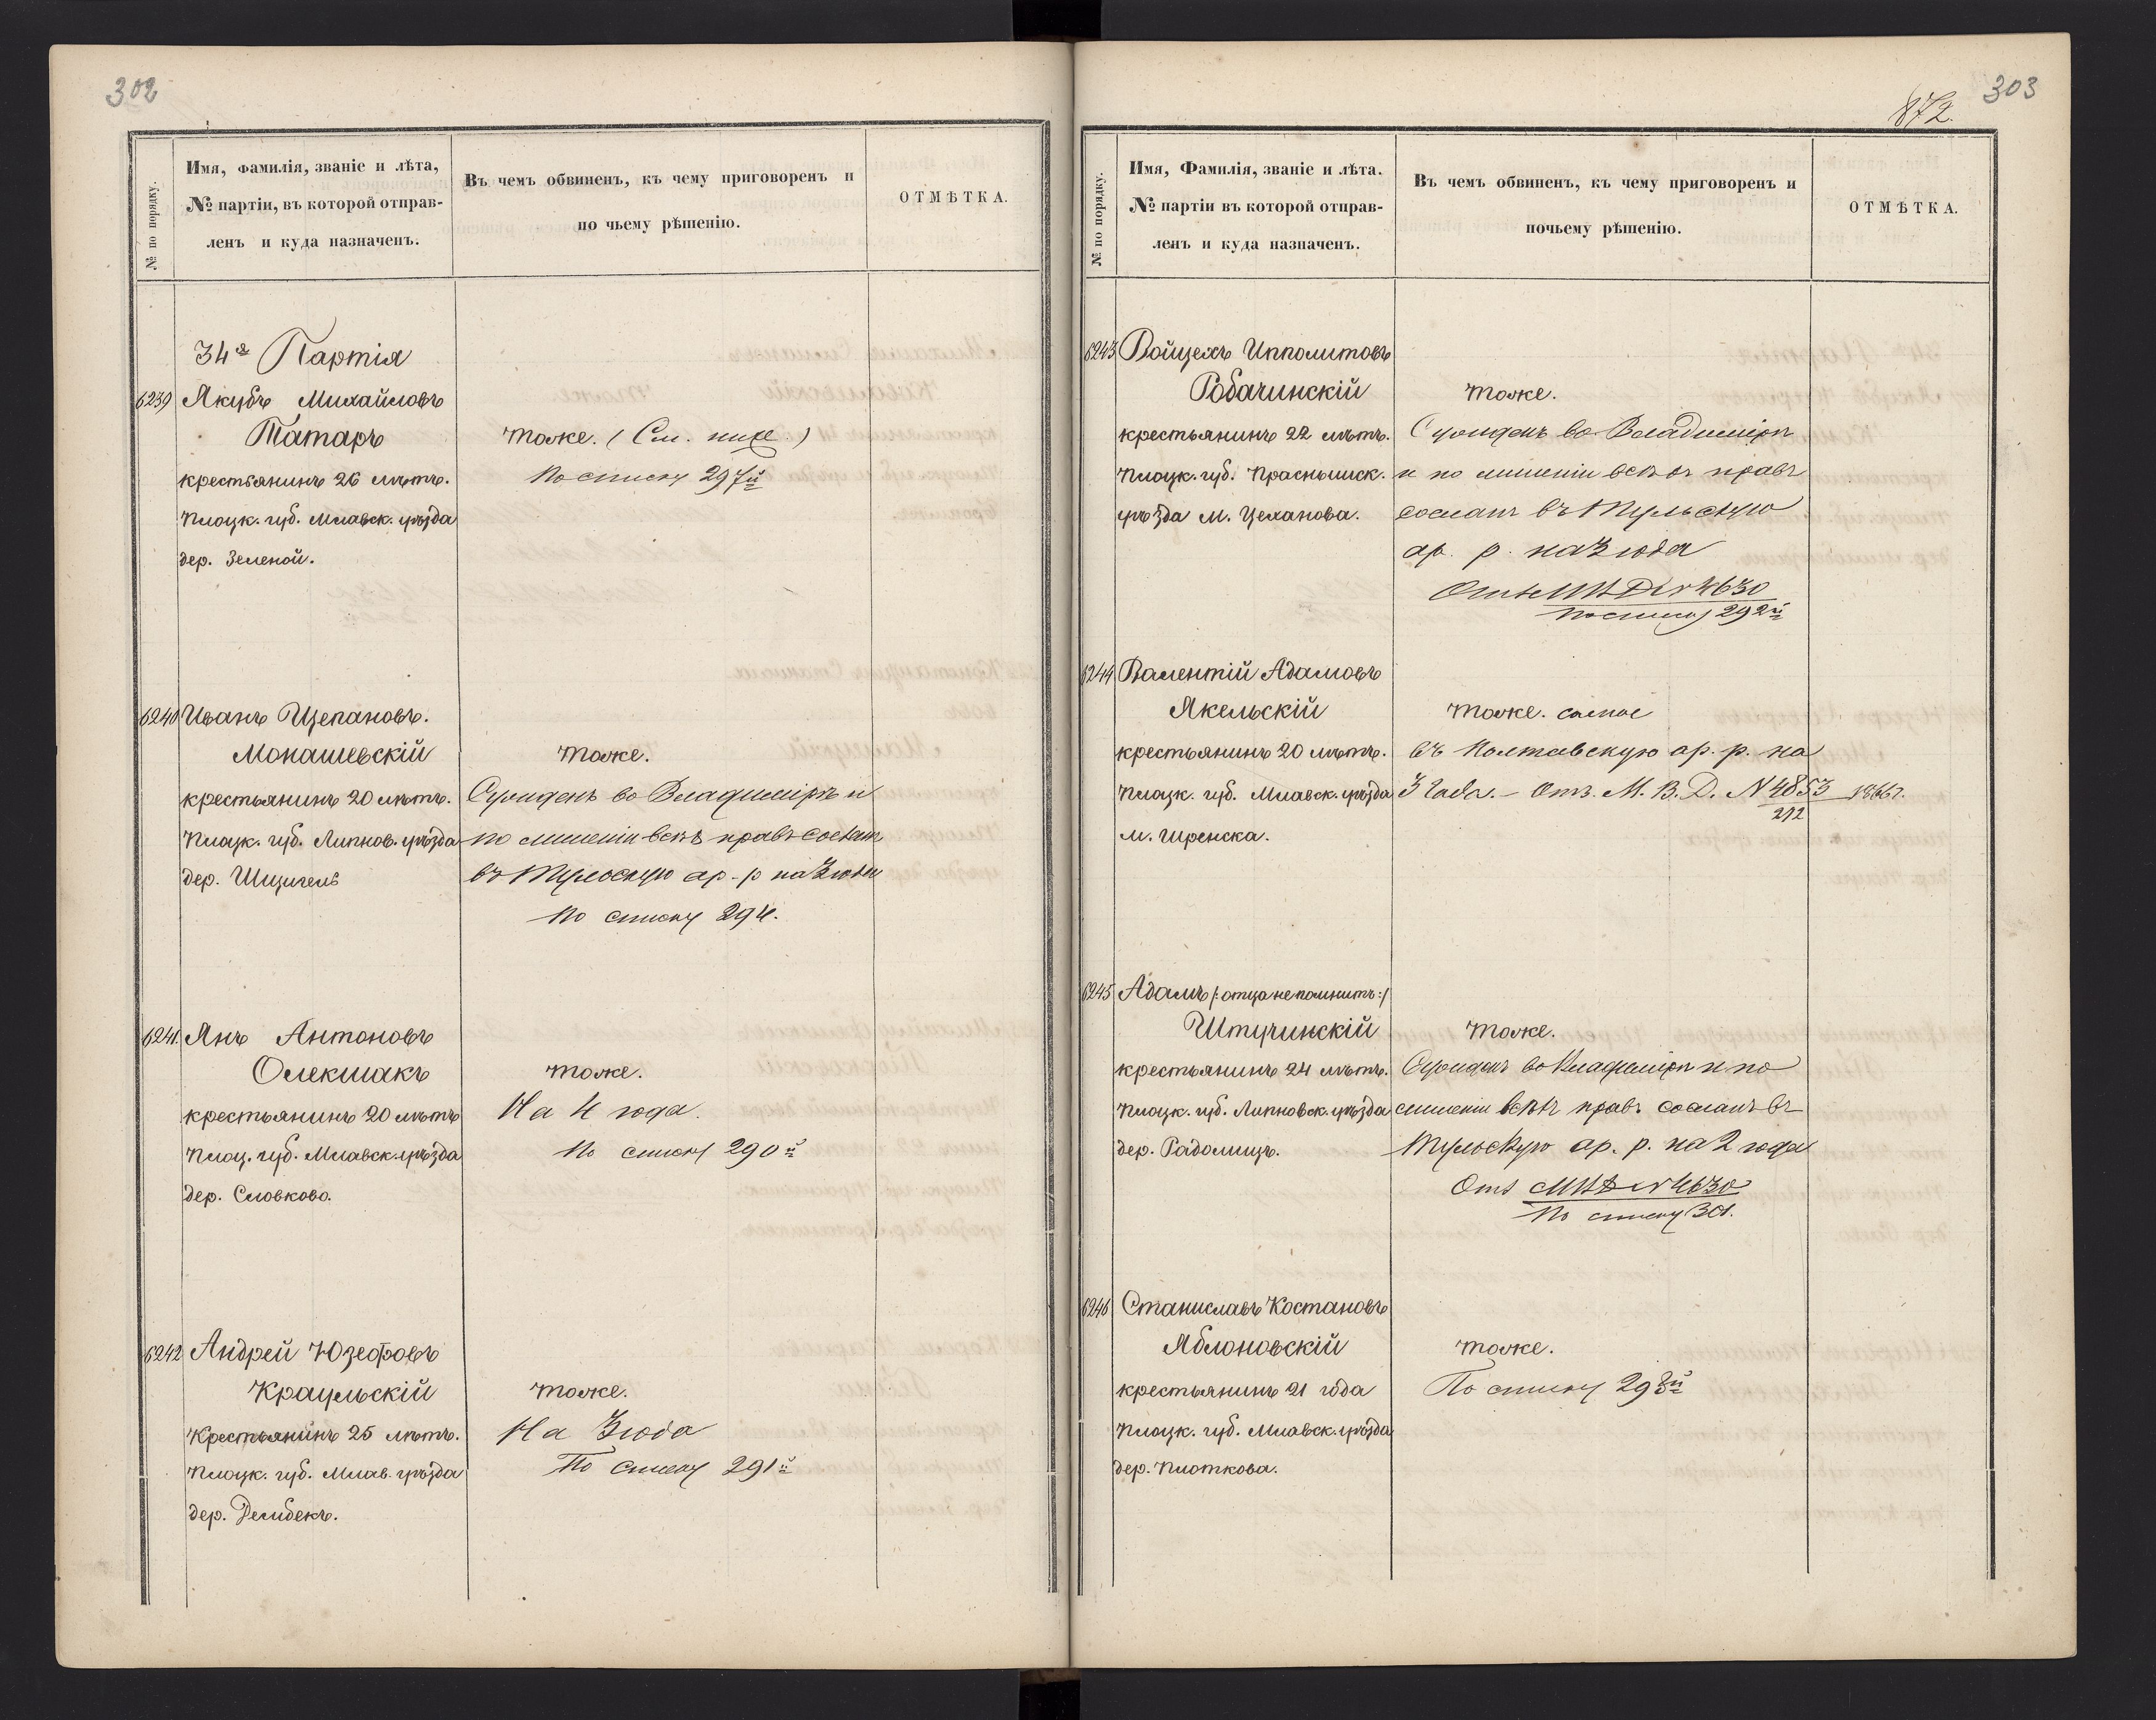 302
№ по порядку.
Имя, фамилія, званіе и лѣта,
№ партіи, въ которой отправ-
ленъ и куда назначенъ.
Въ чемъ обвиненъ, къ чему приговоренъ и
по чьему рѣшенію.
ОТМѢТКА.
34я Партія
6239 Якубъ Михайловъ
Татаръ
тоже. (См. ниже.)
крестьянинъ 26 лѣтъ.
По списку 297й
Плоцк. губ. Млавск. уѣзда
дер. Зеленой.
6240 Иванъ Щепановъ.
Монашевскій
тоже.
крестьянинъ 20 лѣтъ.
Сужденъ во Владимірѣ и
Плоцк. губ. Липнов. уѣзда
по лишеніи всѣхъ правъ сослан
дер. Шицигель
въ Тульскую ар. р на 3 года
По списку 294.
6241. Янъ Антоновъ
Олекшакъ
тоже.
крестьянинъ 20 лѣтъ
На 4 года.
Плоц. губ. Млавск. уѣзда
По списку 290й
дер. Словково.
6242 Андрей Юзефовъ
Краульскій
тоже.
Крестьянинъ 25 лѣтъ.
На 3 года
Плоцк. губ. Млав. уѣзда
По списку 291й
дер. Дембекъ.
303
872.
№ по порядку.
Имя, Фамилія, званіе и лѣта.
№ партіи въ которой отправ-
ленъ и куда назначенъ.
Въ чемъ обвиненъ, къ чему приговоренъ и
почьему рѣшенію.
ОТМѢТКА.
6243 Войцехъ Ипполитовъ
Робачинскій
тоже.
крестьянинъ 22 лѣтъ.
Сужденъ во Владимірѣ
Плоцк. губ. Праснышск.
и по лишеніи всѣхъ правъ
уѣзда м. Цеханова.
сосланъ въ Тульскую
ар. р. на 3 года
Отн МВД № 4630
по списку 292й
6244 Валентій Адамовъ
Якельскій
тоже. самое
крестьянинъ 20 лѣтъ.
въ Полтавскую ар. р. на
Плоцк. губ. Млавск. уѣзда
3 года. – Отн. М. В. Д. N 4853 1866 г.
292
м. Шренска.
6245 Адамъ /: отца не помнитъ :/
Штучинскій
тоже.
крестьянинъ 24 лѣтъ.
Сужденъ во Владимірѣ и по
Плоцк. губ. Липновск. уѣзда
лишеніи всѣхъ правъ сосланъ въ
дер. Радомицъ.
Тульскую ар. р. на 2 года
Отн МВД № 4630
По списку 301.
6246 Станиславъ Костановъ
Яблоновскій
тоже.
крестьянинъ 21 года
По списку 293й
Плоцк. губ. Млавск. уѣзда
дер. Плоткова.